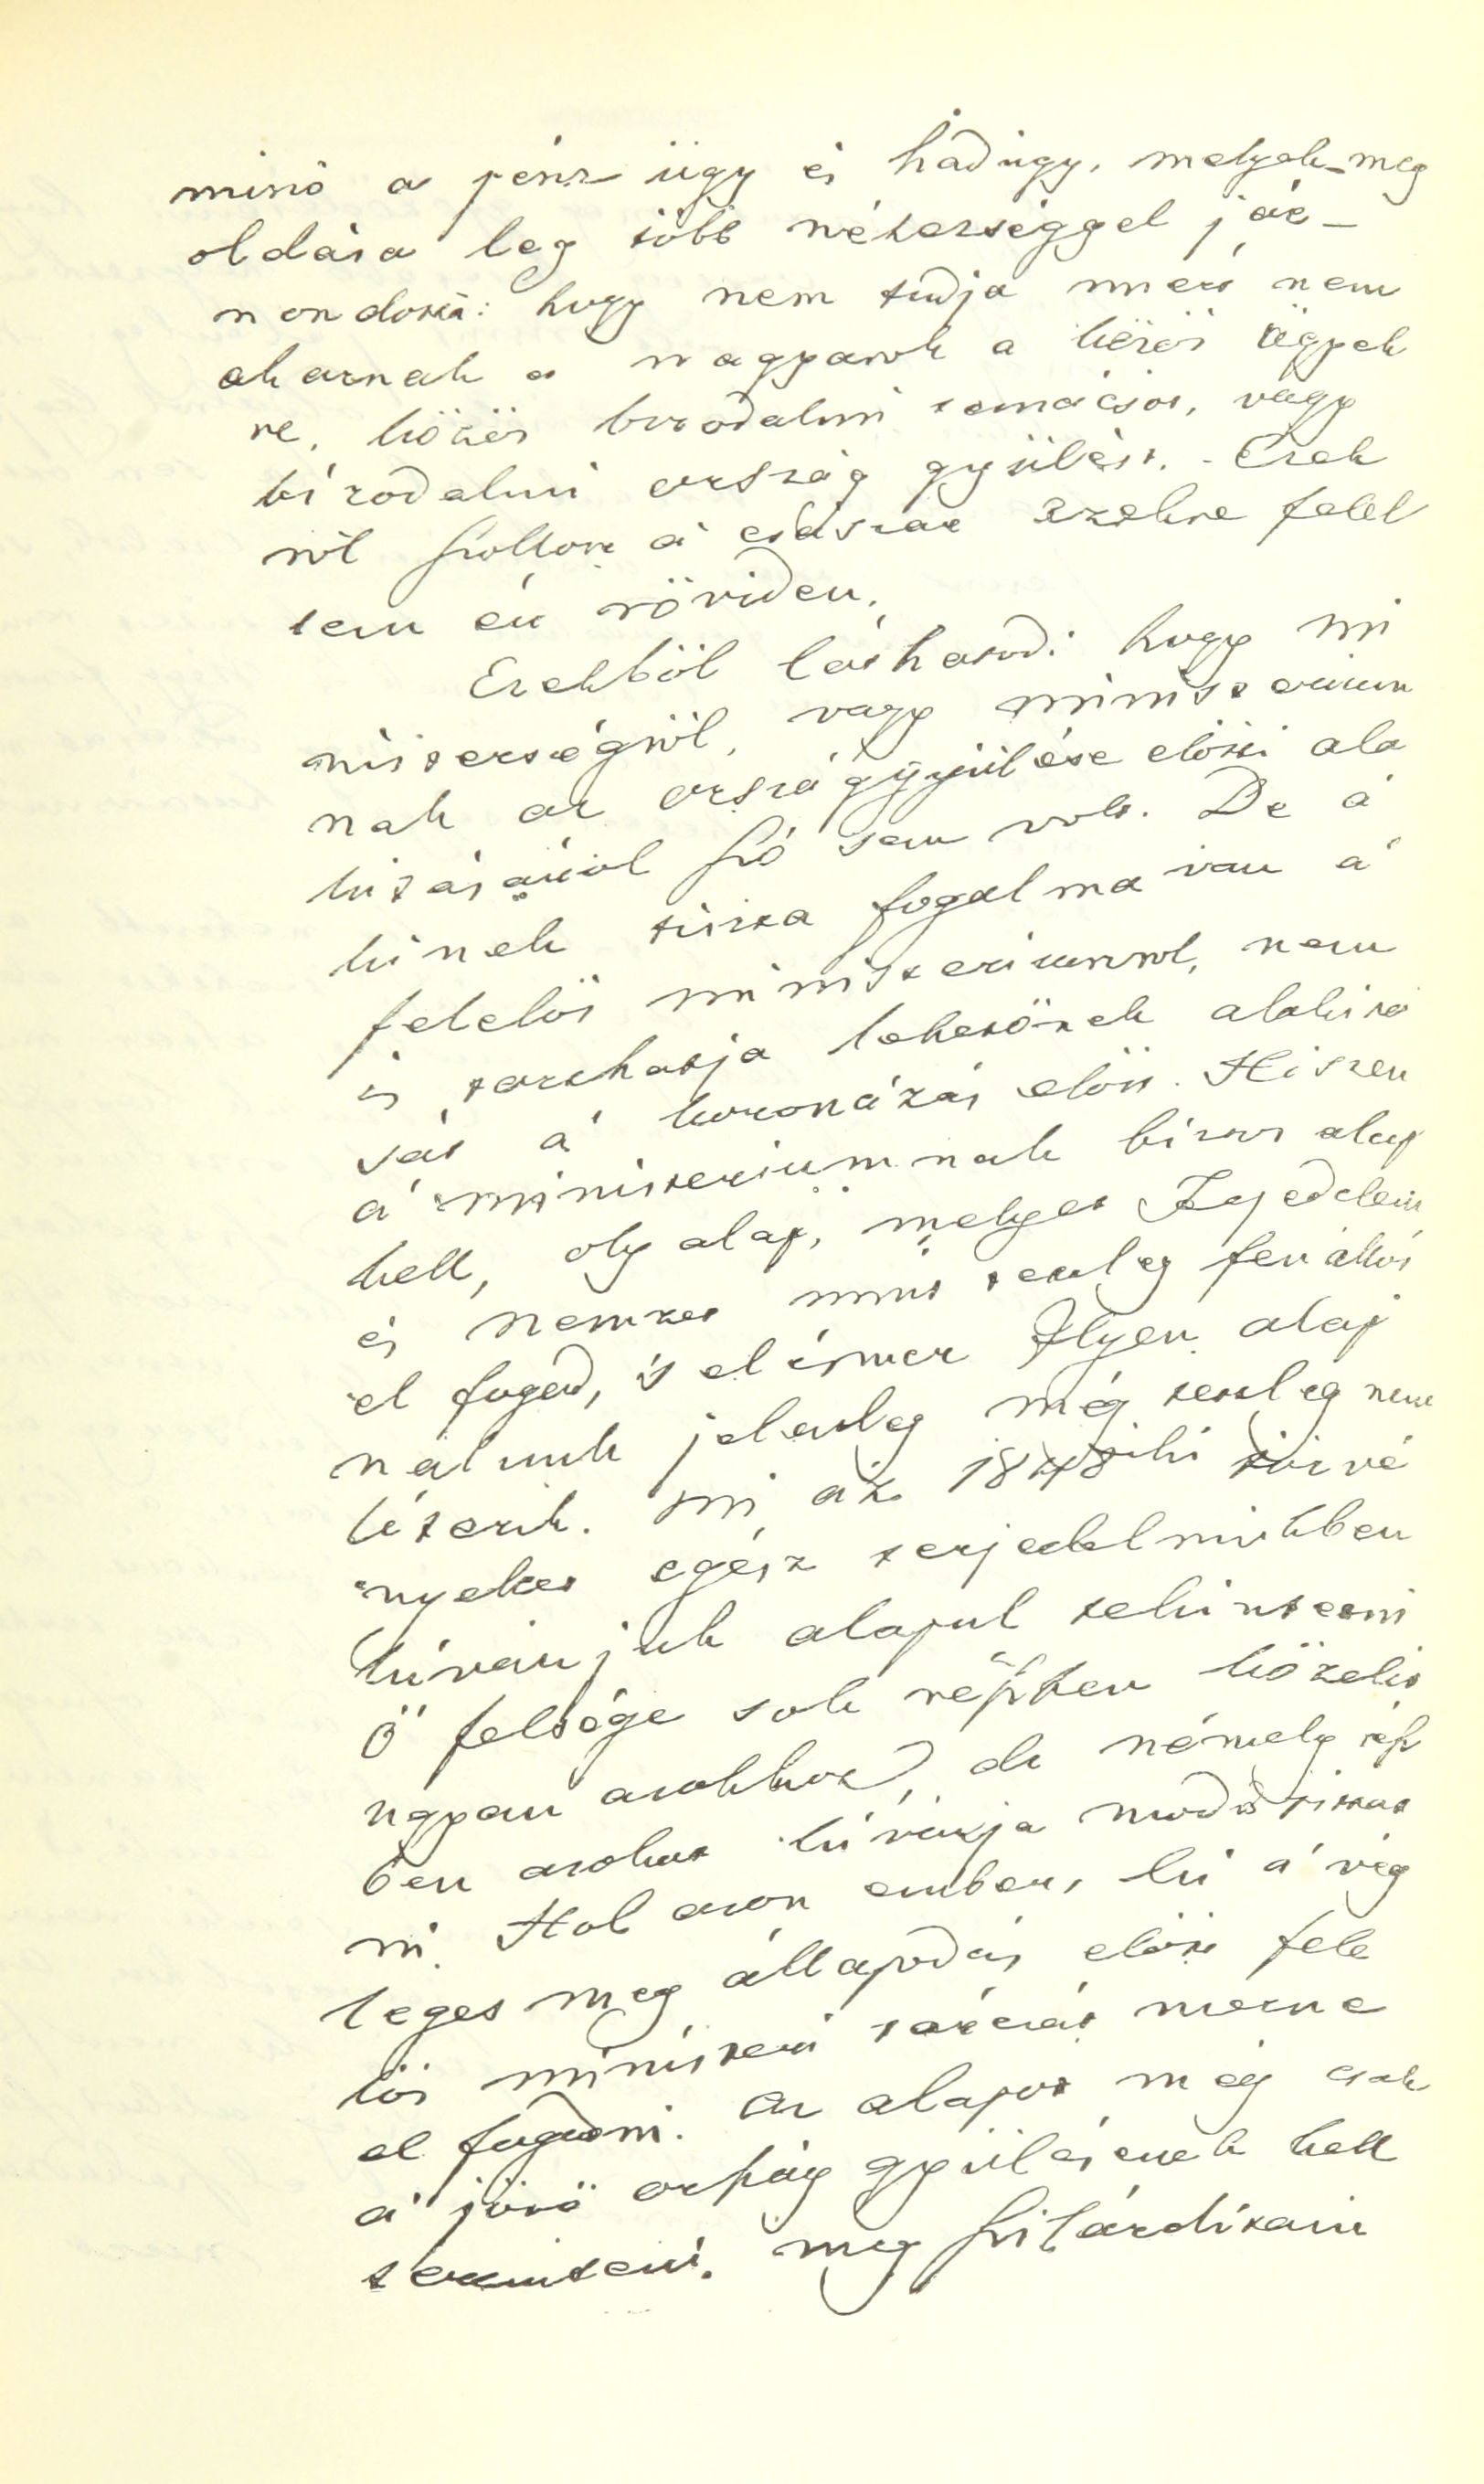 minő a pénz ügy és hadügy, melyek meg
oldása leg több nehézséggel jár –
mondotta: hogy nem tudja miért nem
akarnak a magyarok a közös ügyek
re, közös birodalmi tanácsot, vagy
birodalmi ország gyülést. – Ezek
ről szollott a' császár ezekre felel
tem én röviden.
Ezekből láthatod: hogy mi
niszterségről, vagy ministerium
nak az országgyülése előtti ala
kitásáról szó sem volt. De a'
kinek tiszta fogalma van a'
felelős ministeriumrol, nem
is tarthatja lehetőnek alakitá
sát a' koronázás előtt. Hiszen
a' ministeriumnak biztos alap
kell, oly alap, melyet Fejedelem
és Nemzet mint tettleg fenállót
el fogad, 's elismer Ilyen alap
nálunk jelenleg még tettleg nem
létezik. Mi az 1848iki törvé
nyeket egész terjedelmükben
kivánjuk alapul tekinteni
Ő felsége sok részben közelit
ugyan azokhoz, de némely rész
ben azokat kivánja modositat
ni. Hol azon ember, ki a' vég
leges meg állapodás előtt fele
lős ministeri tárczát merne
el fogadni. Az alapot még csak
a' jövő ország gyülésének kell
teremteni. meg szilárditani